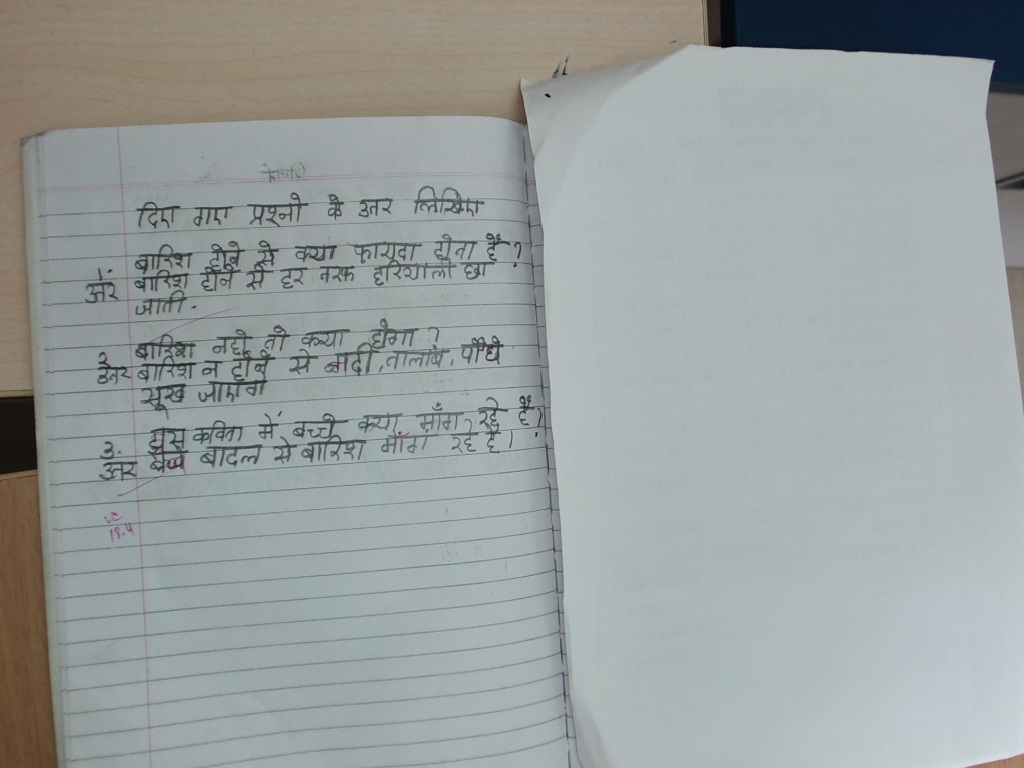 दिए गए प्रश्नो के उतर लिखिए
बारिश होने से क्या फायदा होता है?
बारिश होने से हर तरफ हरियाली छा
जाती.
2. बारिश नहो तो क्या होगा?
उतर बारिश न होने से नदी, तालाब, पौधे
सूख जाएगे
3. इस कविता में बच्चे क्या माँग रहे है?
उतर बच्चे बादल से बारिश माँग रहे है।
18.4